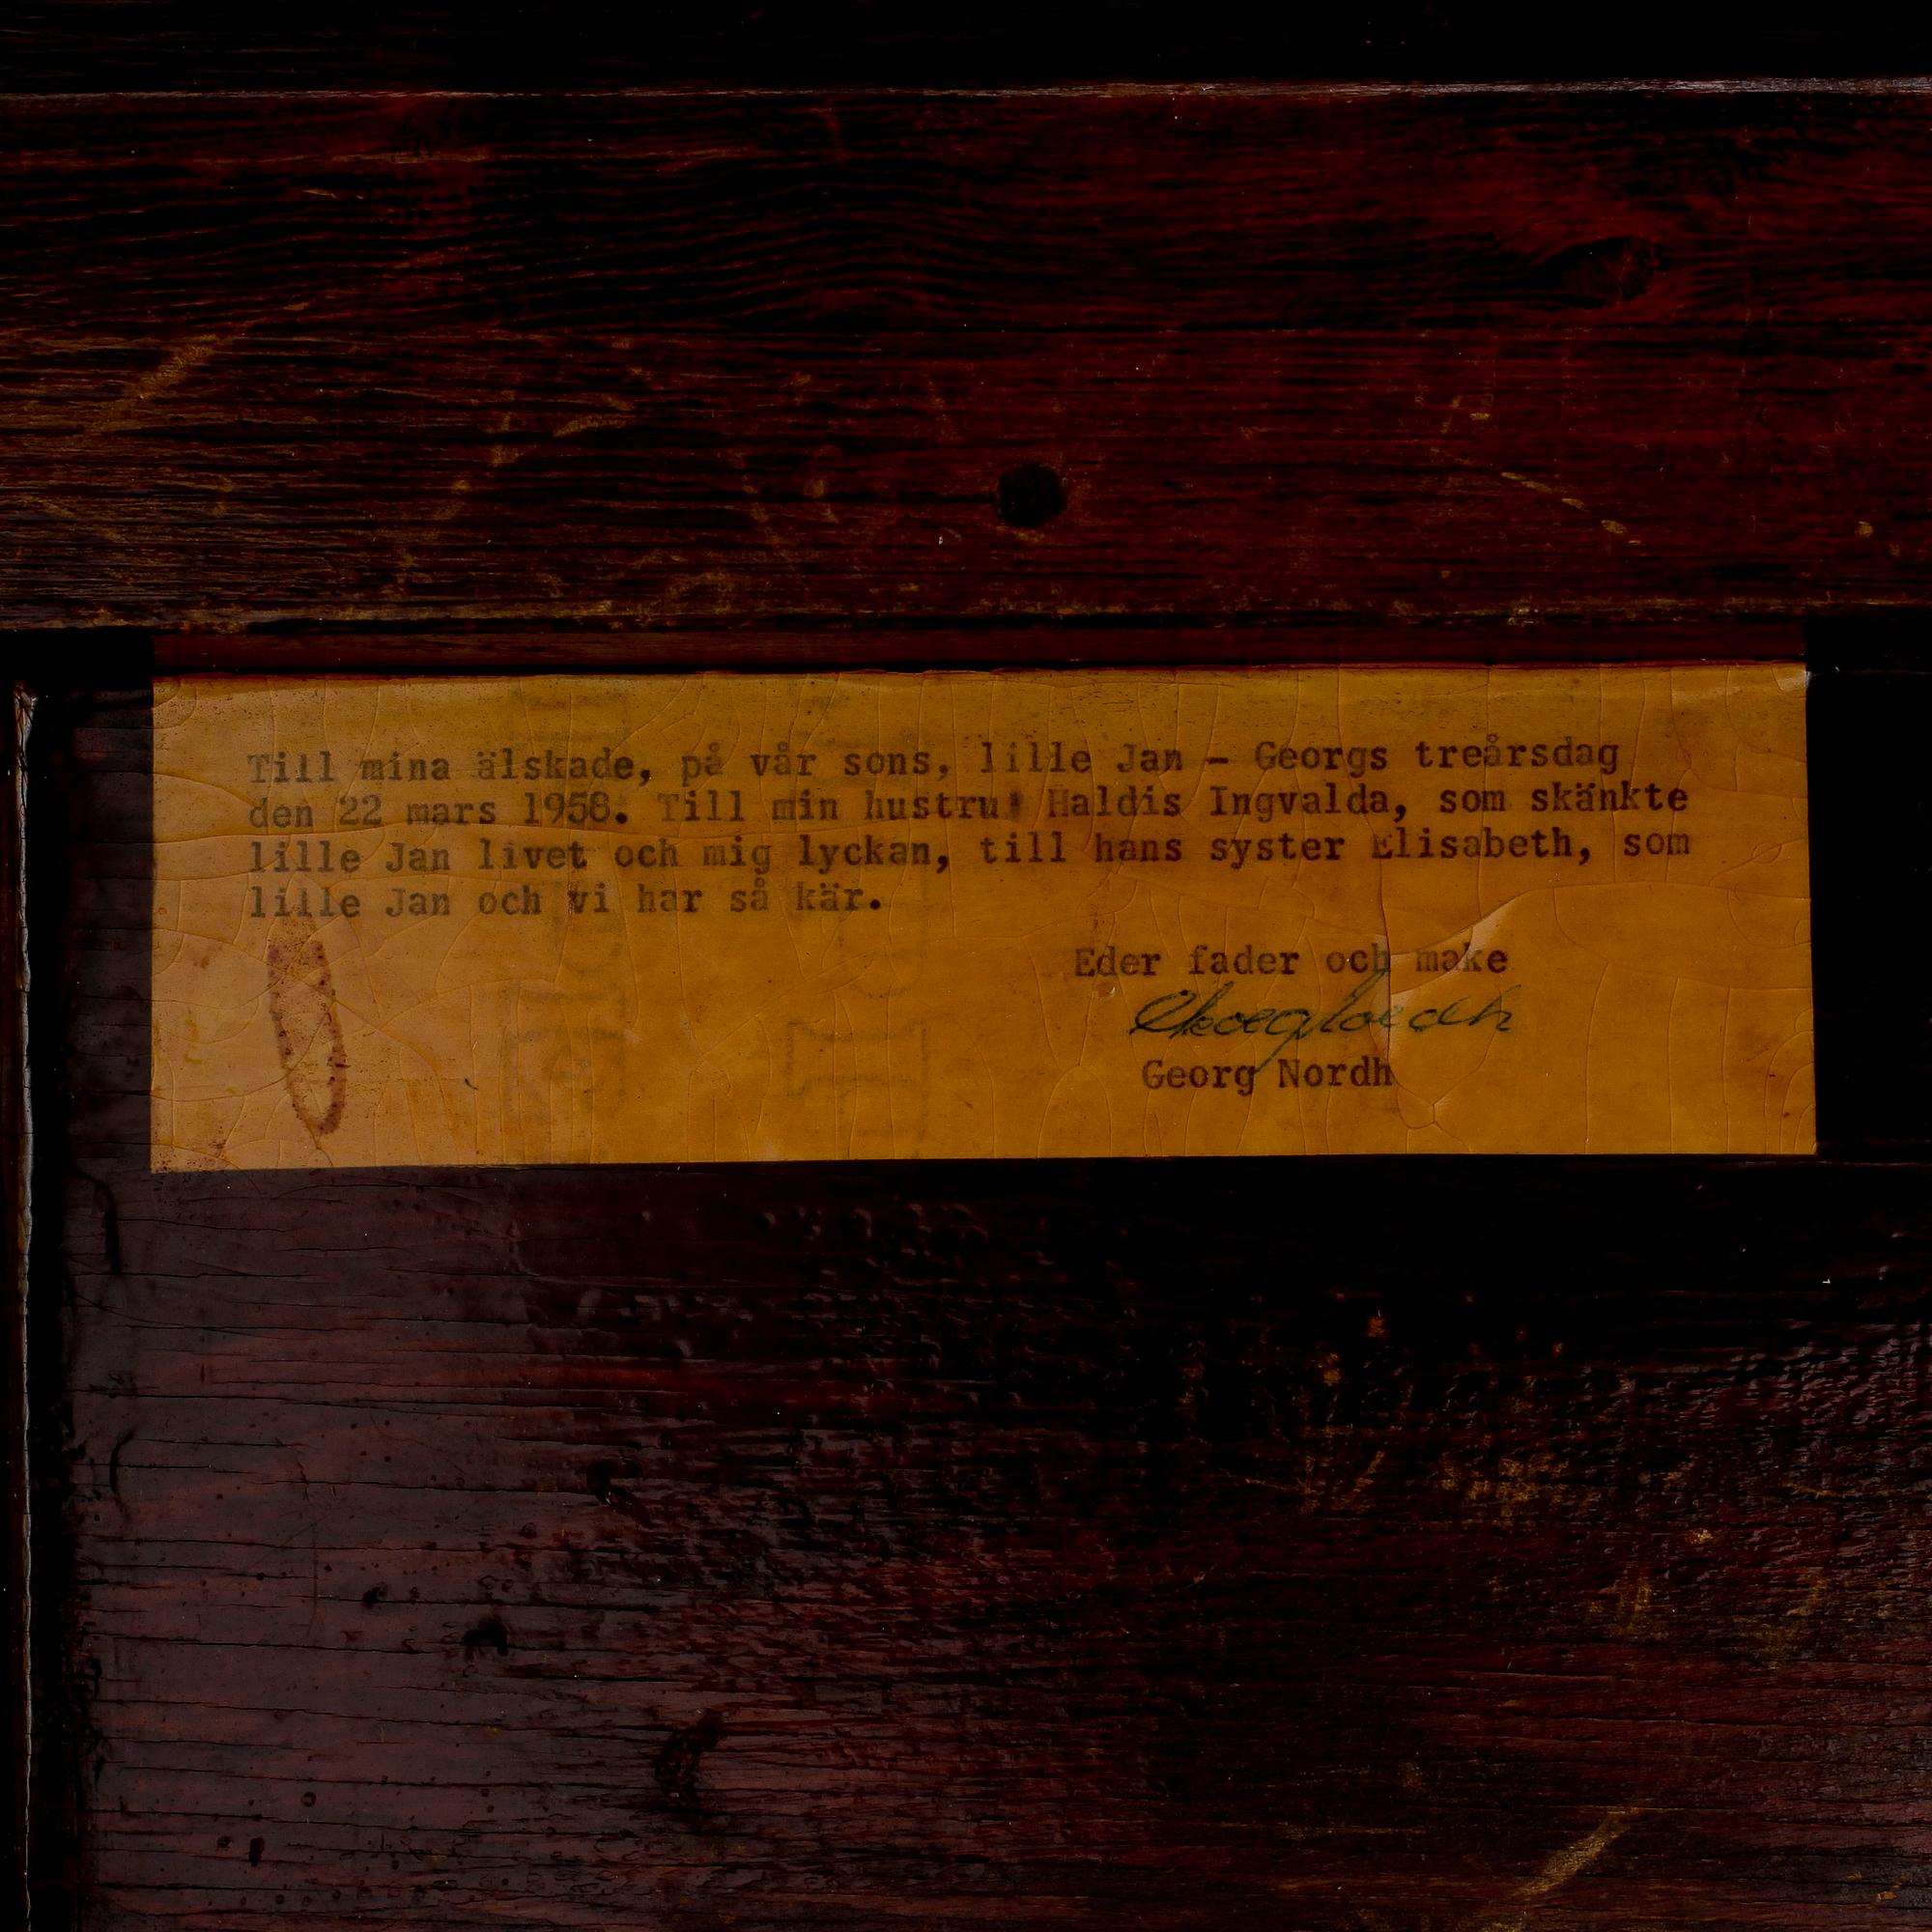 Till mina älskade, på vår sons, lille Jan - Georgs treårsdag
den 22 mars 1958. Till min hustru Haldis Ingvalda, som skänkte
lille Jan livet och mig lyckan, till hans syster Elisabeth, som
lille Jan och vi har så kär.
Eder fader och make
Georg Nordh